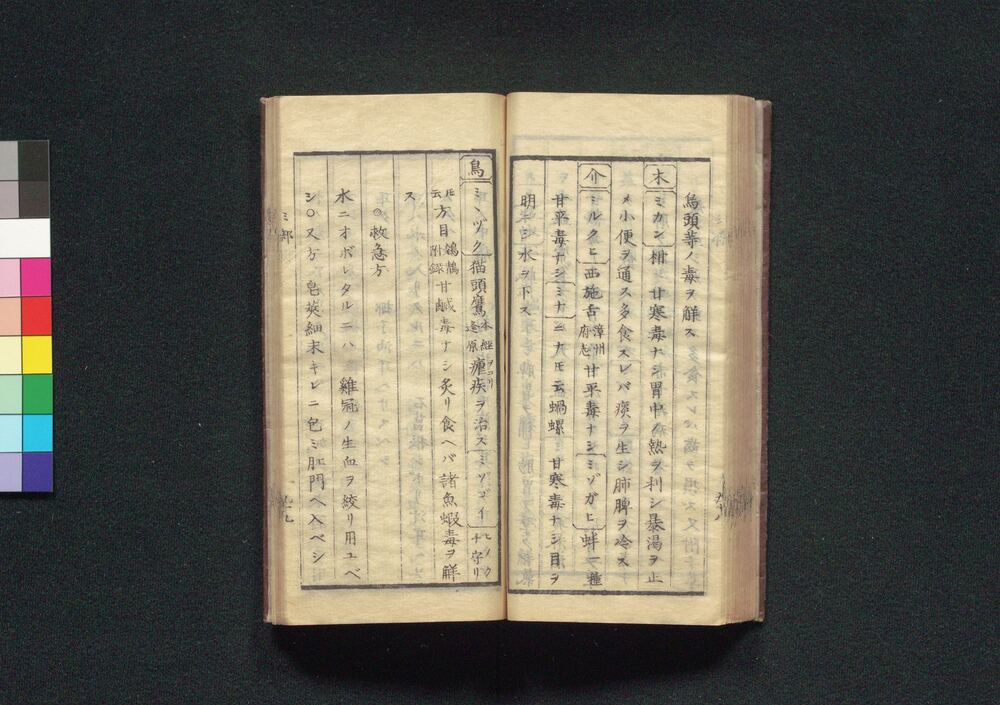 烏頭等ノ毒ヲ解ス
木 ミカン 柑 甘寒毒ナシ胃中ノ熱ヲ利シ暴渇ヲ止
メ小便ヲ通ス多食スレバ痰ヲ生シ肺脾ヲ冷ス
介 ミルクヒ 西施舌 漳州府志 甘平毒ナシ ミゾガヒ 蚌一種
甘平毒ナシ ミナ ニナ𪜈云 蝸螺 甘寒毒ナシ目ヲ
明ニシ水ヲ下ス
鳥 ミヽヅク 猫頭鷹 本經逢原 瘧疾ヲ治ス ミゾゴイ ヒノクナ守リ
𪜈云 方目 鸂鶒附録 甘鹹毒ナシ炙リ食ヘバ諸魚蝦毒ヲ解
ス
○救急方
水ニオボレタルニハ 雞冠ノ生血ヲ絞リ用ユベ
シ○又方 皂莢細末キレニ包ミ肛門ヘ入ベシ
ミ部